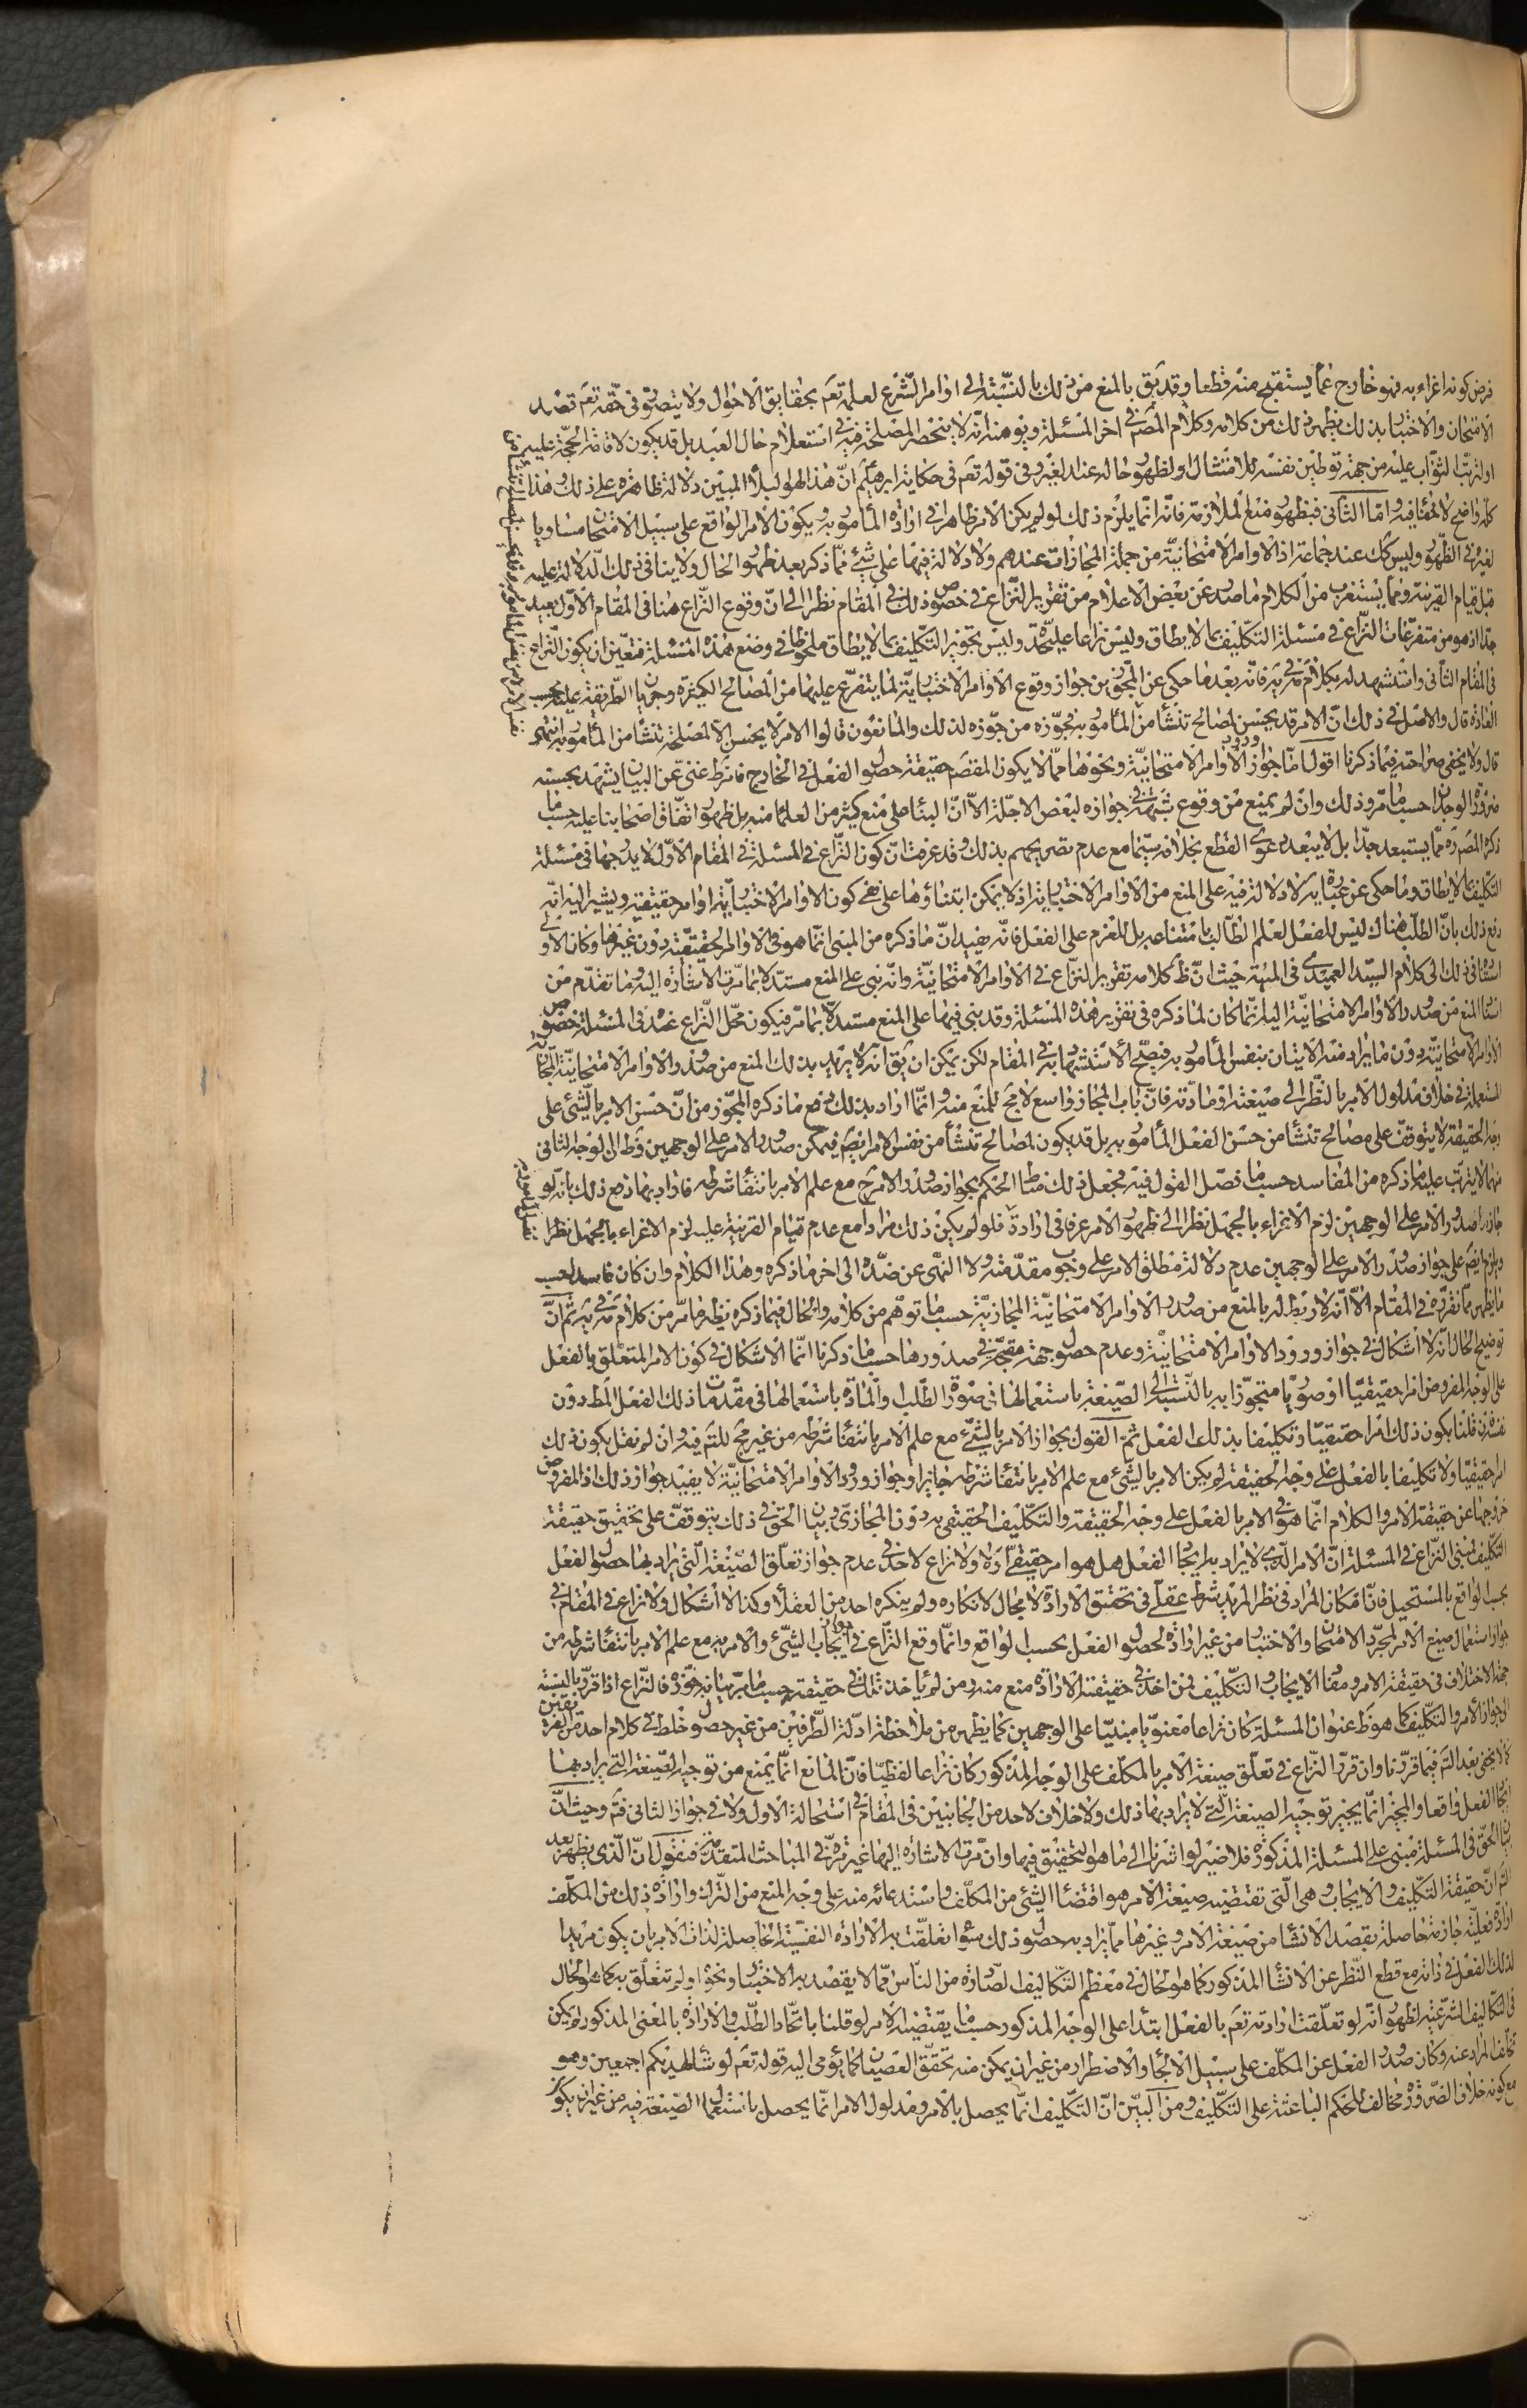 فرض كونه اغراء به فهو خارج عما يستقبح منه قطعا وقد يق بالمنع من ذلك بالنسبة الى اوامر الشرع لعلمه تعم بحقايق الاحوال ولا يتصور في حقه تعم قصد
الامتحان والاختبار بذلك يظهر ذلك من كلامه وكلام المصم في اخر المسئلة ويوهنه انه لا ينحصر المصلحة فيه في استعلام حال العبد بل قد يكون لاقامة الحجة عليه
او لترتب الثواب عليه من جهة توطين نفسه للامتثال او لظهور حاله عند الغير وفي قوله تعم في حكاية ابرهيم ان هذا لهو البلاء المبين دلالة ظاهرة على ذلك وهذا
كله واضح لا خفاء فيه واما الثاني فبظهور منع الملازمة فانه انما يلزم ذلك لو لم يكن الامر ظاهرا في ارادة المأمور به ويكون الامر الواقع على سبيل الامتحان مساويا
لغيره في الظهور وليس كك عند جماعة اذ الاوامر الامتحانية من جملة المجازات عندهم ولا دلالة فيها على شيء مما ذكر بعد ظهور الحال ولا ينافي ذلك الدلالة عليه
قبل قيام القرينة ومما يستغرب من الكلام ما صدر عن بعض الاعلام من تقرير النزاع في خصوص ذلك في المقام نظرا الى ان وقوع النزاع هنا في المقام الاول بعيد
جدا اذ هو من متفرعات النزاع في مسئلة التكليف بما لا يطاق وليس نزاعا عليحدة وليس تجويز التكليف بما لا يطاق ملحوظا في وضع هذه المسئلة فتعين ان يكون النزاع
في المقام الثاني واستشهد له بكلام فانه بعد ما حكى عن المجوزين جواز وقوع الاوامر الاختبارية لما يتفرع عليها من المصالح الكثيرة وجريان الطريقة عليه بحسب
العادة قال والاصل في ذلك ان الامر قد يحسن لمصالح تنشأ من المأمور به فجوزه من جوزه لذلك والمانعون قالوا الامر لا يحسن الا لمصلحة تنشأ من المأمور به انتهى
قال ولا يخفى صراحته فيما ذكرنا اقول اما جواز ورود الاوامر الامتحانية ونحوها مما لا يكون المقصم حقيقة حصول الفعل في الخارج فامر ظ غني عن البيان يشهد بحسنه
ضرورة الوجدان حسبما مر وذلك وان لم يمنع من وقوع شبهة في جوازه لبعض الاجلة الا ان البناء على منع كثير من العلماء منه بل ظهور اتفاق اصحابنا عليه حسبما
ذكره المصم ره مما يستبعد جدا بل لا يبعد دعوى القطع بخلافه سيما مع عدم تصريحهم بذلك وقد عرفت ان كون النزاع في المسئلة في المقام الاول لا يدرجها في مسئلة
التكليف بما لا يطاق وما حكي عن عبارته لا دلالة فيه على المنع من الاوامر الاختبارية اذ لا يمكن ابتناؤها على نفي كون الاوامر الاختبارية اوامر حقيقية ويشير اليه انه
دفع ذلك بان الطلب هناك ليس للفعل لعلم الطالب بامتناعه بل للعزم على الفعل فانه يفيد ان ما ذكره من المبنى انما هو في الاوامر الحقيقية دون غيرها وكان الاولى
استناد ذلك الى كلام السيد العميدي في المنية حيث ان ظ كلامه تقرير النزاع في الاوامر الامتحانية وانه بنى على المنع مستدلا بما مرت الاشارة اليه وما تقدم من
اسناد المنع من صدور الاوامر الامتحانية اليه ربما كان لما ذكره في تقرير هذه المسئلة وقد بنى فيها على المنع مستدلا بما مر فيكون محل النزاع عنده في المسئلة خصوص
الاوامر الامتحانية دون ما يراد منه الاتيان بنفس المأمور به فيصح الاستشهاد به في المقام لكن يمكن ان يق انه لا يريد بذلك المنع من صدور الاوامر الامتحانية المجازية
المستعملة في خلاف مدلول الامر بالنظر الى صيغته او مادته فان باب المجاز واسع لا مجم للمنع منه وانما اراد بذلك دفع ما ذكره المجوز من ان حسن الامر بالشيء على
وجه الحقيقة لا يتوقف على مصالح تنشأ من حسن الفعل المأمور به بل قد يكون لمصالح تنشأ من نفس الامر ايضم فيمكن صدور الامر على الوجهين وظ ان الوجه الثاني
منهما لا يترتب عليه ما ذكره من المفاسد حسبما فصل القول فيه فجعل ذلك مناطا للحكم بجواز صدور الامر مع علم الامر بانتفاء شرطه فاراد بما ذكره دفع ذلك بانه لو
جاز صدور الامر على الوجهين لزم الاغراء بالجهل نظرا الى ظهور الامر عرفا في ارادة فلو لم يكن ذلك مرادا مع عدم قيام القرينة عليه لزم الاغراء بالجهل نظرا
ويلزم ايضم على جواز صدور الامر على الوجهين عدم دلالة مطلق الامر على وجوب مقدمته ولا النهي عن ضده الى اخر ما ذكره وهذا الكلام وان كان فاسدا حسب
ما يظهر مما نقرره في المقام الا انه لا ربط له بالمنع من صدور الاوامر الامتحانية المجازية حسبما توهم من كلامه والحال فيما ذكره نظير ما مر من كلام ثم ان
توضيح الحال انه لا اشكال في جواز ورود الاوامر الامتحانية وعدم حصول جهة مقبحة في صدورها حسبما ذكرنا انما الاشكال في كون الامر المتعلق بالفعل
على الوجه المفروض امرا حقيقيا او صوريا متجوزا به بالنسبة الى الصيغة باستعمالها في صورة الطلب والمادة باستعمالها في مقدمات ذلك الفعل المطر دون
نفسه فان قلنا بكون ذلك امرا حقيقيا وتكليفا بذلك الفعل ثم القول بجواز الامر بالشيء مع علم الامر بانتفاء شرطه من غير مجم للتم فيه وان لم نقل بكون ذلك
امرا حقيقيا ولا تكليفا بالفعل على وجه الحقيقة لم يكن الامر بالشيء مع علم الامر بانتفاء شرطه جايزا وجواز ورود الاوامر الامتحانية لا يفيد جواز ذلك اذ المفروض
خروجها عن حقيقة الامر والكلام انما هو في الامر بالفعل على وجه الحقيقة والتكليف الحقيقي به دون المجازي وبيان الحق في ذلك يتوقف على تحقيق حقيقة
التكليف فمبنى النزاع في المسئلة ان الامر الذي لا يراد به ايجاد الفعل هل هو امر حقيقة اولا ولا نزاع لاحد في عدم جواز تعلق الصيغة التي يراد بها حصول الفعل
بحسب الواقع بالمستحيل فان امكان المراد في نظر المريد شرط عقلي في تحقق الارادة لا مجال لانكاره ولم ينكره احد من العقلاء وكذا لا اشكال ولا نزاع في المقام في
جواز استعمال صيغ الامر لمجرد الامتحان والاختبار من غير ارادة لحصول الفعل بحسب الواقع وانما وقع النزاع في جواز ايجاب الشيء والامر به مع علم الامر بانتفاء شرطه من
جهة الاختلاف في حقيقة الامر ومفاد الايجاب والتكليف فمن اخذ في حقيقته الارادة منع منه ومن لم ياخذ تلك في حقيقته حسبما مر بيانه جوزه فالنزاع اذا قرر بالنسبة
الى جواز الامر والتكليف كما هو ظ عنوان المسئلة كان نزاعا معنويا مبنيا على الوجهين كما يظهر من ملاحظة ادلة الطرفين من غير حصول خلط في كلام احد من الفريقين
كما لا يخفى بعد التم فيما قررنا وان قرر النزاع في تعلق صيغة الامر بالمكلف على الوجه المذكور كان نزاعا لفظيا فان المانع انما يمنع من توجيه الصيغة التي يراد بها
ايجاد الفعل واقعا والمجيز انما يجيز توجيه الصيغة التي لا يراد بها ذلك ولا خلاف لاحد من الجانبين في المقام في استحالة الاول ولا في جواز الثاني فتم وحيث ان
بيان الحق في المسئلة مبني على المسئلة المذكورة فلا ضير لو اشرنا الى ما هو التحقيق فيها وان مرت الاشارة اليها غير مرة في المباحث المتقدمة فنقول ان الذي يظهر بعد
التم ان حقيقة التكليف والايجاب وهي التي تقتضيه صيغة الامر هو اقتضاء الشيء من المكلف واستدعائه منه على وجه المنع من الترك وارادة ذلك من المكلف
ارادة فعلية جازمة حاصلة بقصد الانشاء من صيغة الامر وغيرها مما يراد به حصول ذلك سواء تعلقت به الارادة النفسية الحاصلة لذات الامر بان يكون مريدا
لذلك الفعل في ذاته مع قطع النظر عن الانشاء المذكور كما هو الحال في معظم التكاليف الصادرة من الناس مما لا يقصد به الاختبار ونحوه او لم تتعلق به كما هو الحال
في التكاليف الشرعية لظهور انه لو تعلقت ارادته تعم بالفعل ابتداء على الوجه المذكور حسبما يقتضيه الامر لو قلنا باتحاد الطلب والارادة بالمعنى المذكور لم يكن
تخلف المراد عنه وكان صدور الفعل عن المكلف على سبيل الالجاء والاضطرار من غير ان يمكن منه تحقق العصيان كما يؤمى اليه قوله تعم لو شاء لهديكم اجمعين وهو
مع كونه خلاف الضرورة مخالف للحكم الباعثة على التكليف ومن البين ان التكليف انما يحصل بالامر ومدلول الامر انما يحصل باستعمال الصيغة فيه من غير ان يكون